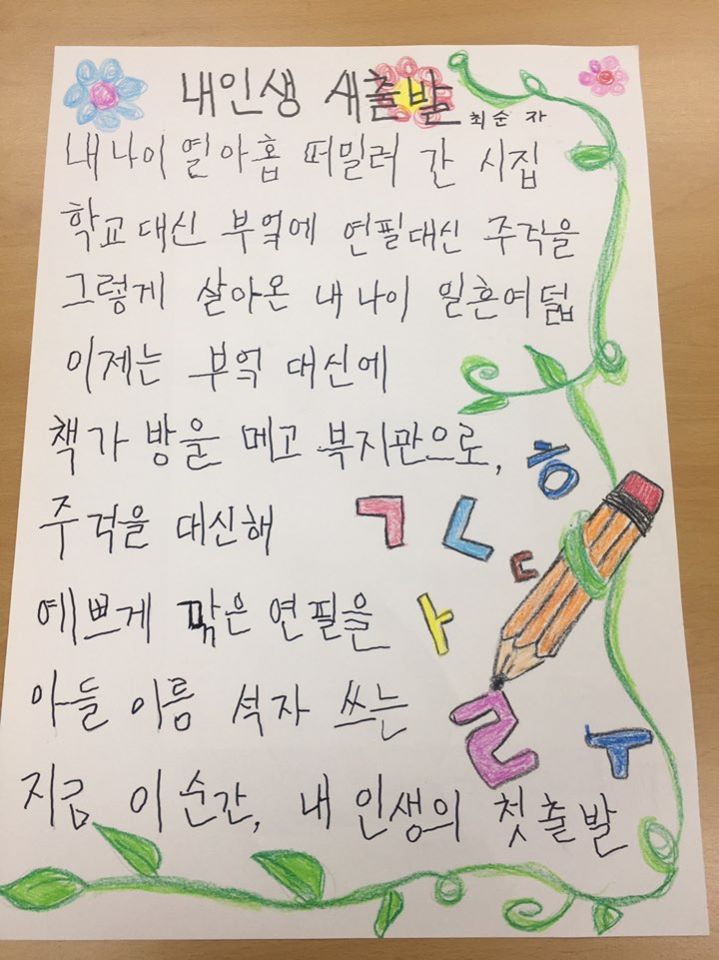 내인생 새출발 최순자
내 나이 열아홉 떠밀려 간 시집
학교대신 부엌에 연필대신 주걱을
그렇게 살아온 내 나이 일흔여덟
이제는 부엌 대신에
책가방을 메고 복지관으로,
주걱을 대신해
예쁘게 깎은 연필을
아들 이름 석자 쓰는
지금 이 순간, 내 인생의 첫출발
ㅎ
ㄱ ㄴ ㄷ
ㅏ
ㄹ ㅜ